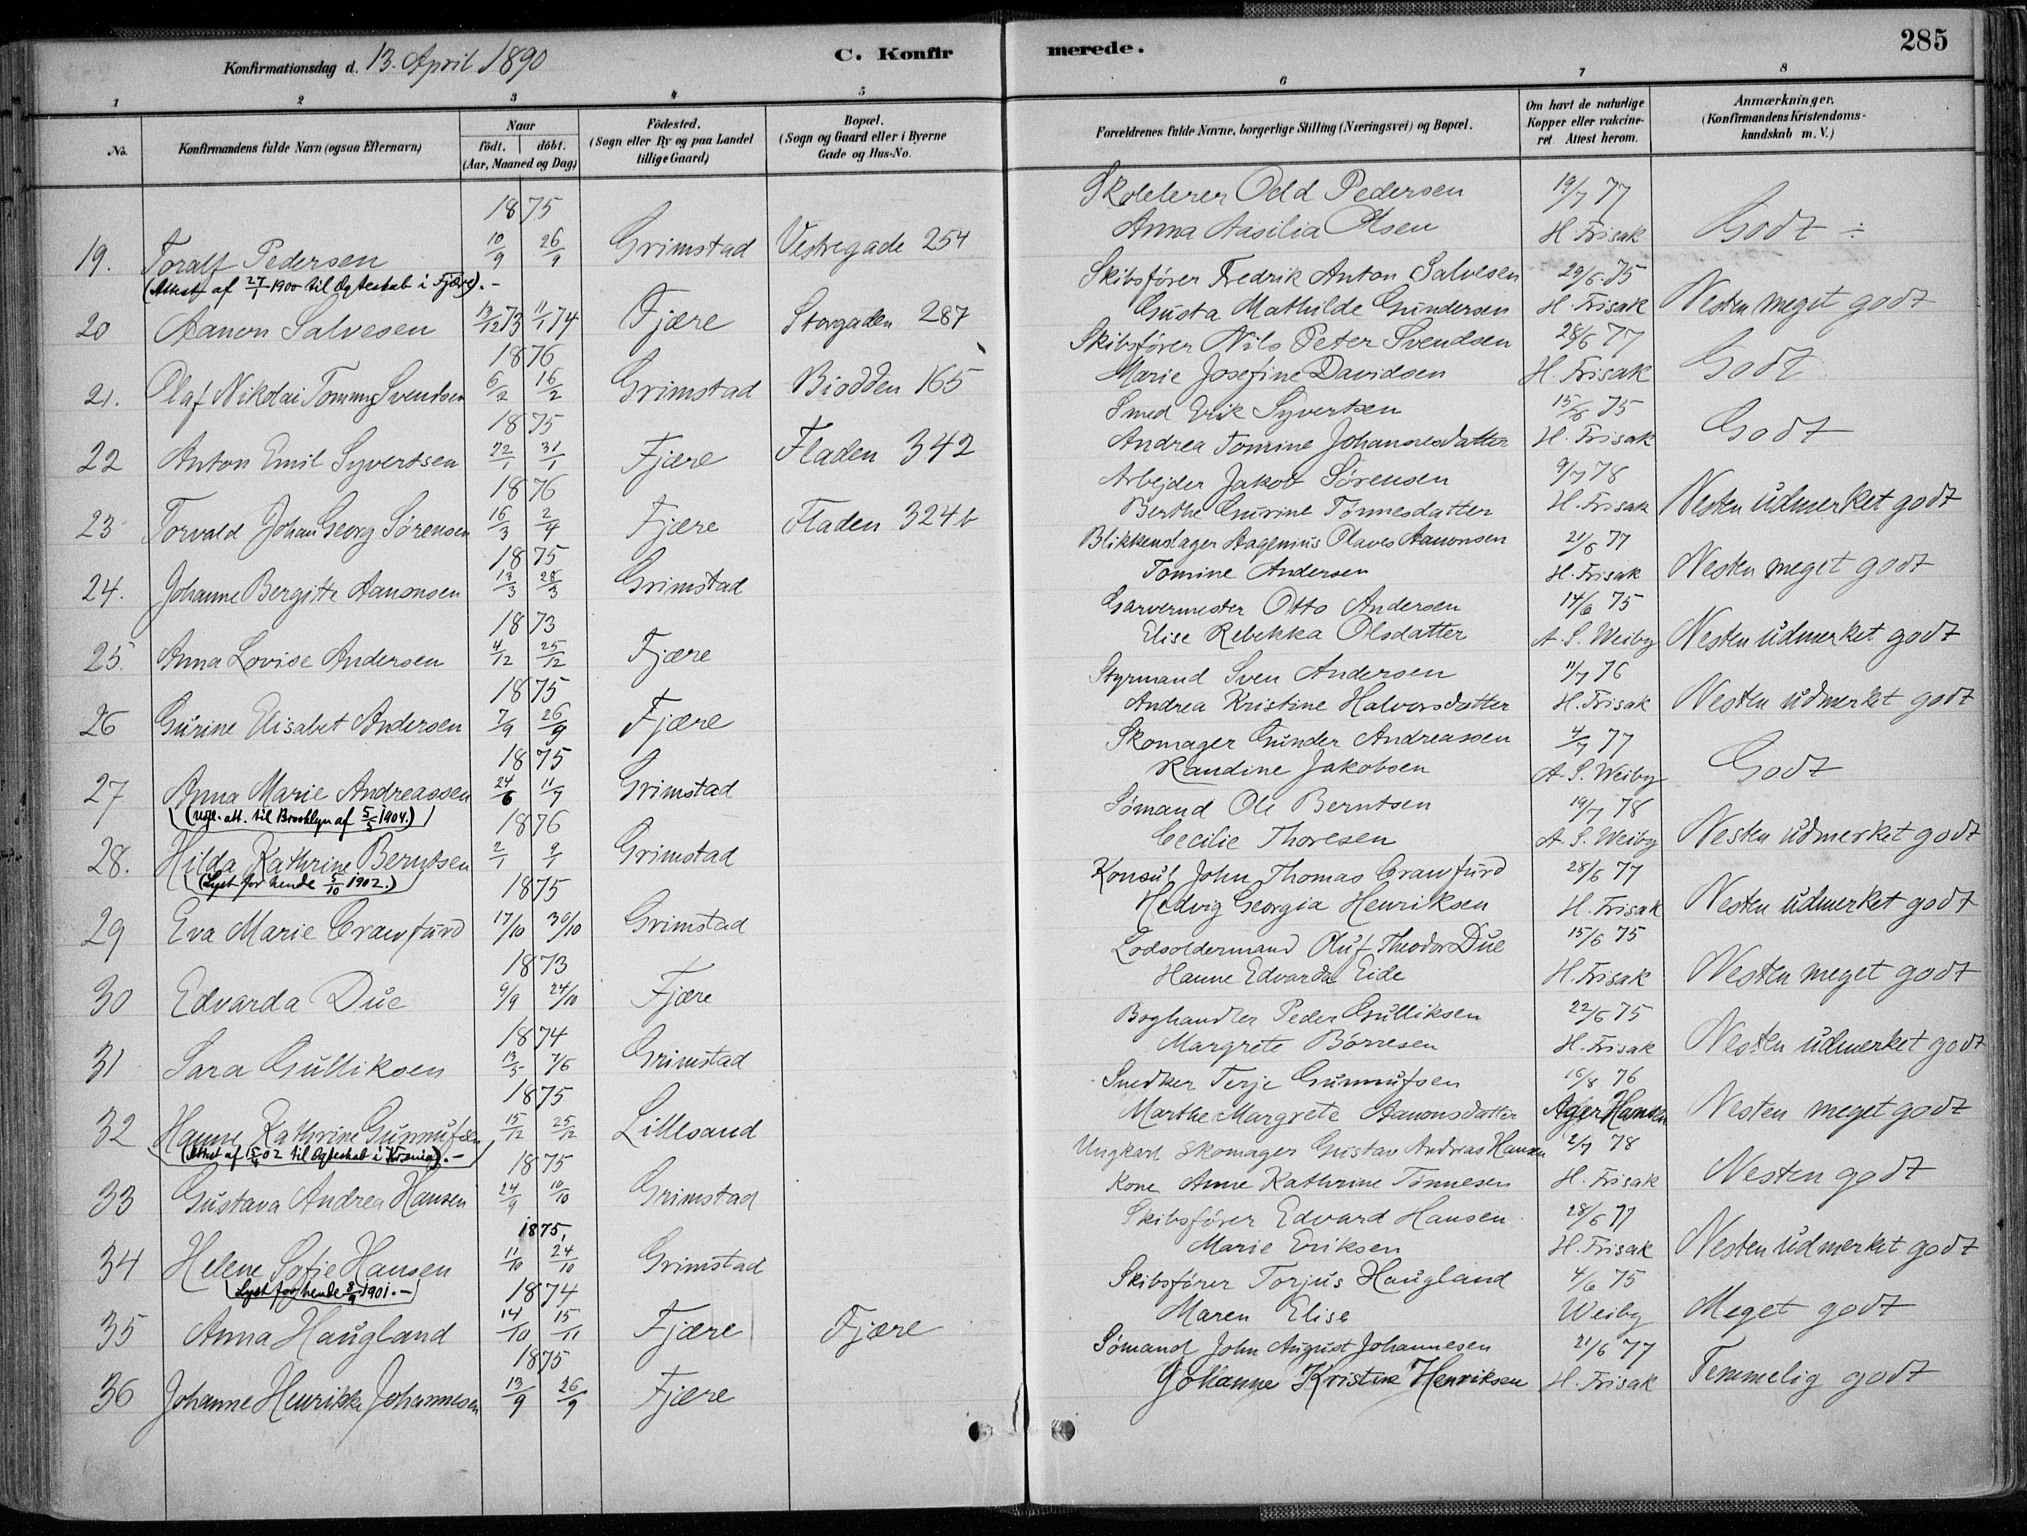 Konfirmationsdag d. 13. April 1890
C. Konfirmerede.
285
1 2 3 4 5 6 7 8
No. Konfirmandens fulde Navn (ogsaa Efternavn) Naar födt. döbt. (Aar, Maaned og Dag) Födested. (Sogn eller By og paa Landet tillige Gaard) Bopæl. (Sogn og Gaard eller i Byerne Gade og Hus-No. Forældrenes fulde Navne, borgerlige Stilling (Næringsvei) og Bopæl. Om havt de naturlige Kopper eller vakcineret Attest herom. Anmærkninger. (Konfirmandens Kristendomskundskab m. V.)
1875 Skolelerer Odd Pedersen 19/7 77
19. Toralf Pedersen 10/9 26/9 Grimstad Vestregade 254 Anna Aasilia Olsen H. Frisak Godt ÷
(Attest af 27/1 1900 til Egteskab i Fjære).- Skibsfører Fredrik Anton Salvesen 29/6 75
20 Aanon Salvesen 13/12 73 11/1 74 Fjære Storgaden 287 Gusta Mathilde Gundersen H. Frisak Nesten meget godt
1876 Skibsfører Nils Peter Svendsen 28/6 77
21. Olaf Nikolai Tommy Svendsen 6/2 16/2 Grimstad Biodden 165 Marie Josefine Davidsen H. Frisak Godt
1875 Smed Erik Syvertsen 15/6 75
22 Anton Emil Syvertsen 22/1 31/1 Fjære Fladen 342 Andrea Tomine Johannesdatter H. Frisak Godt
1876 Arbejder Jakob Sørensen 9/7 78
23 Torvald Johan Georg Sørensen 16/3 2/4 Fjære Fladen 324 b Berthe Gurine Tønnesdatter H. Frisak Nesten udmerket godt
1875 Blikkenslager Aagenius Olaves Aanonsen 21/6 77
24. Johanne Bergitte Aanonsen 13/3 28/3 Grimstad Tomine Andersen H. Frisak Nesten meget godt
1873 Garvermester Otto Andersen 14/6 75
25. Anna Lovise Andersen 4/12 25/12 Fjære Elise Rebekka Olsdatter A. S. Weiby Nesten udmerket godt
1875 Styrmand Sven Andersen 11/7 76
26 Gurine Elisabet Andersen 7/9 26/9 Fjære Andrea Kristine Halvorsdatter H. Frisak Nesten udmerket godt
1875 Skomager Gunder Andreassen 4/7 77
27 Anna Marie Andreassen 24/6 11/7 Grimstad Randine Jakobsen A. S. Weiby Godt
(Uegt. att. til Brooklyn af 5/5 1904.) 1876 Sømand Ole Berntsen 19/7 78
28. Hilda Kathrine Berntsen 2/1 9/1 Grimstad Cecilie Thoresen A. S. Weiby Nesten udmerket godt
(Lyst for hende 5/10 1902.) 1875 Konsul John Thomas Crawfurd 28/6 77
29 Eva Marie Crawfurd 17/10 30/10 Grimstad Hedvig Georgia Henriksen H. Frisak Nesten udmerket godt
1873 Lodsoldermand Oluf Theodor Due 15/6 75
30 Edvarda Due 9/9 24/10 Fjære Hanne Edvarda Eide H. Frisak Nesten meget godt
1874 Boghandler Peder Gulliksen 22/6 75
31 Sara Gulliksen 13/5 7/6 Grimstad Margrete Børresen H. Frisak Nesten udmerket godt
1875 Snedker Terje Gunnufsen 16/8 76
32 Hanne Kathrine Gunnufsen 15/12 25/12 Lillesand Marthe Margrete Aanonsdatter Ager Hansen Nesten meget godt
(Attest af 5/4 02 til Egteskab i Krsnia).- 1875 Ungkarl Skomager Gustav Andreas Hansen 2/7 78
33 Gustava Andrea Hansen 24/9 10/10 Grimstad Kone Anne Kathrine Tønnesen H. Frisak Nesten godt
1875, Skibsfører Edvard Hansen 28/6 77
34 Helene Sofie Hansen 11/10 24/10 Grimstad Marie Eriksen H. Frisak Nesten udmerket godt
(Lyst for hende 8/9 1901.- 1874 Skibsfører Torjus Haugland 4/6 75
35 Anna Haugland 14/10 15/11 Fjære Fjære Maren Elise Weiby Meget godt
1875 Sømand John August Johannesen 21/6 77
36 Johanne Henrikke Johannesen 13/9 26/9 Fjære Johanne Kristine Henriksen H. Frisak Temmelig godt